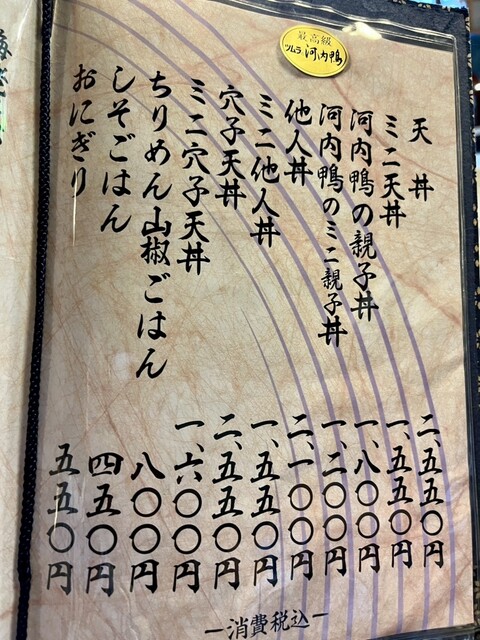 最高級
ツムラ 河内鴨
天丼 二、五五〇円
ミニ天丼 一、五五〇円
河内鴨の親子丼 一、八〇〇円
河内鴨のミニ親子丼 一、二〇〇円
他人丼 二、一〇〇円
ミニ他人丼 一、五五〇円
穴子天丼 二、五五〇円
ミニ穴子天丼 一、六〇〇円
ちりめん山椒ごはん 八〇〇円
しそごはん 四五〇円
おにぎり 五五〇円
ー消費税込ー